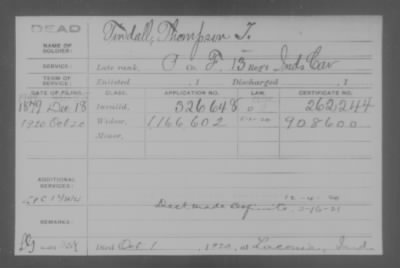 DEAD
NAME OF SOLDIER: Tindall, Thompson T.
SERVICE: Late rank, Co. F, 13 Reg't Ind. Cav
TERM OF SERVICE: Enlisted , 1 Discharged , 1
DATE OF FILING. CLASS. APPLICATION NO. LAW. CERTIFICATE NO.
1879 Dec. 18 Invalid, 326648 262244
1920 Oct 20 Widow, 1166602 908600
Minor,
ADDITIONAL SERVICES:
REMARKS:
Died Oct. 1, 1920, at Laconia, Ind